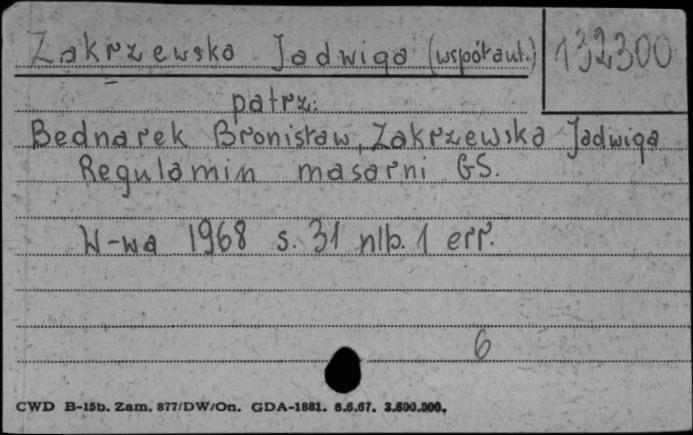 Zakrzewska Jadwiga (współaut.) 132300
patrz:
Bednarek Bronisław, Zakrzewska Jadwiga
Regulamin masarni GS.
W-wa 1968 s. 31 nlb. 1 err.
6
CWD B-15b. Zam. 877/DW/On. GDA-1881. 6.6.67. 3.600.000.